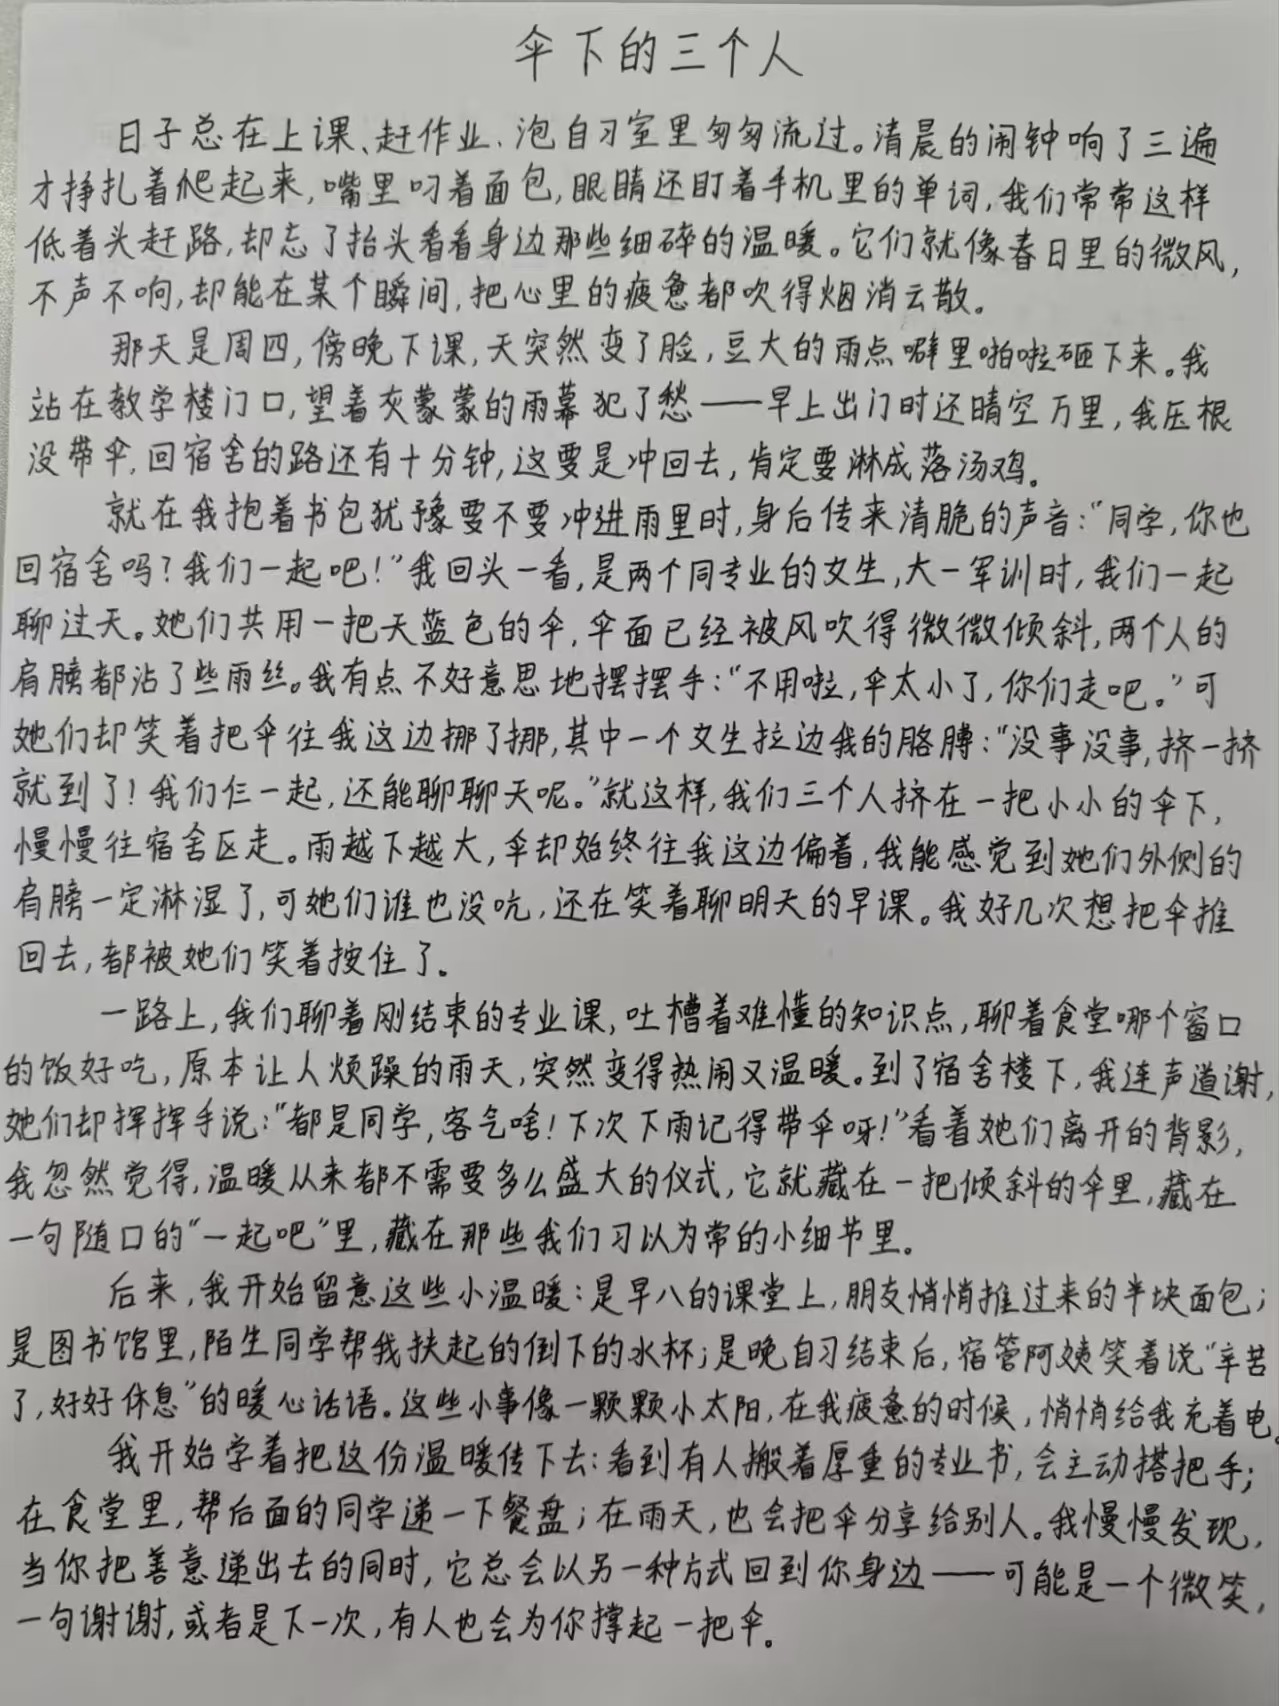 伞下的三个人
日子总在上课、赶作业、泡自习室里匆匆流过。清晨的闹钟响了三遍
才挣扎着爬起来，嘴里叼着面包，眼睛还盯着手机里的单词，我们常常这样
低着头赶路，却忘了抬头看看身边那些细碎的温暖。它们就像春日里的微风，
不声不响，却能在某个瞬间，把心里的疲惫都吹得烟消云散。
那天是周四，傍晚下课，天突然变了脸，豆大的雨点噼里啪啦砸下来。我
站在教学楼门口，望着灰蒙蒙的雨幕犯了愁——早上出门时还晴空万里，我压根
没带伞，回宿舍的路还有十分钟，这要是冲回去，肯定要淋成落汤鸡。
就在我抱着书包犹豫要不要冲进雨里时，身后传来清脆的声音：“同学，你也
回宿舍吗？我们一起吧！”我回头一看，是两个同专业的女生，大一军训时，我们一起
聊过天。她们共用一把天蓝色的伞，伞面已经被风吹得微微倾斜，两个人的
肩膀都沾了些雨丝。我有点不好意思地摆摆手：“不用啦，伞太小了，你们走吧。”可
她们却笑着把伞往我这边挪了挪，其中一个女生拉边我的胳膊：“没事没事，挤一挤
就到了！我们仨一起，还能聊聊天呢。”就这样，我们三个人挤在一把小小的伞下，
慢慢往宿舍区走。雨越下越大，伞却始终往我这边偏着，我能感觉到她们外侧的
肩膀一定淋湿了，可她们谁也没吭，还在笑着聊明天的早课。我好几次想把伞推
回去，都被她们笑着按住了。
一路上，我们聊着刚结束的专业课，吐槽着难懂的知识点，聊着食堂哪个窗口
的饭好吃，原本让人烦躁的雨天，突然变得热闹又温暖。到了宿舍楼下，我连声道谢，
她们却挥挥手说：“都是同学，客气啥！下次下雨记得带伞呀！”看着她们离开的背影，
我忽然觉得，温暖从来都不需要多么盛大的仪式，它就藏在一把倾斜的伞里，藏在
一句随口的“一起吧”里，藏在那些我们习以为常的小细节里。
后来，我开始留意这些小温暖：是早八的课堂上，朋友悄悄推过来的半块面包；
是图书馆里，陌生同学帮我扶起的倒下的水杯；是晚自习结束后，宿管阿姨笑着说“辛苦
了，好好休息”的暖心话语。这些小事像一颗颗小太阳，在我疲惫的时候，悄悄给我充着电。
我开始学着把这份温暖传下去：看到有人搬着厚重的专业书，会主动搭把手；
在食堂里，帮后面的同学递一下餐盘；在雨天，也会把伞分享给别人。我慢慢发现，
当你把善意递出去的同时，它总会以另一种方式回到你身边——可能是一个微笑，
一句谢谢，或者是下一次，有人也会为你撑起一把伞。